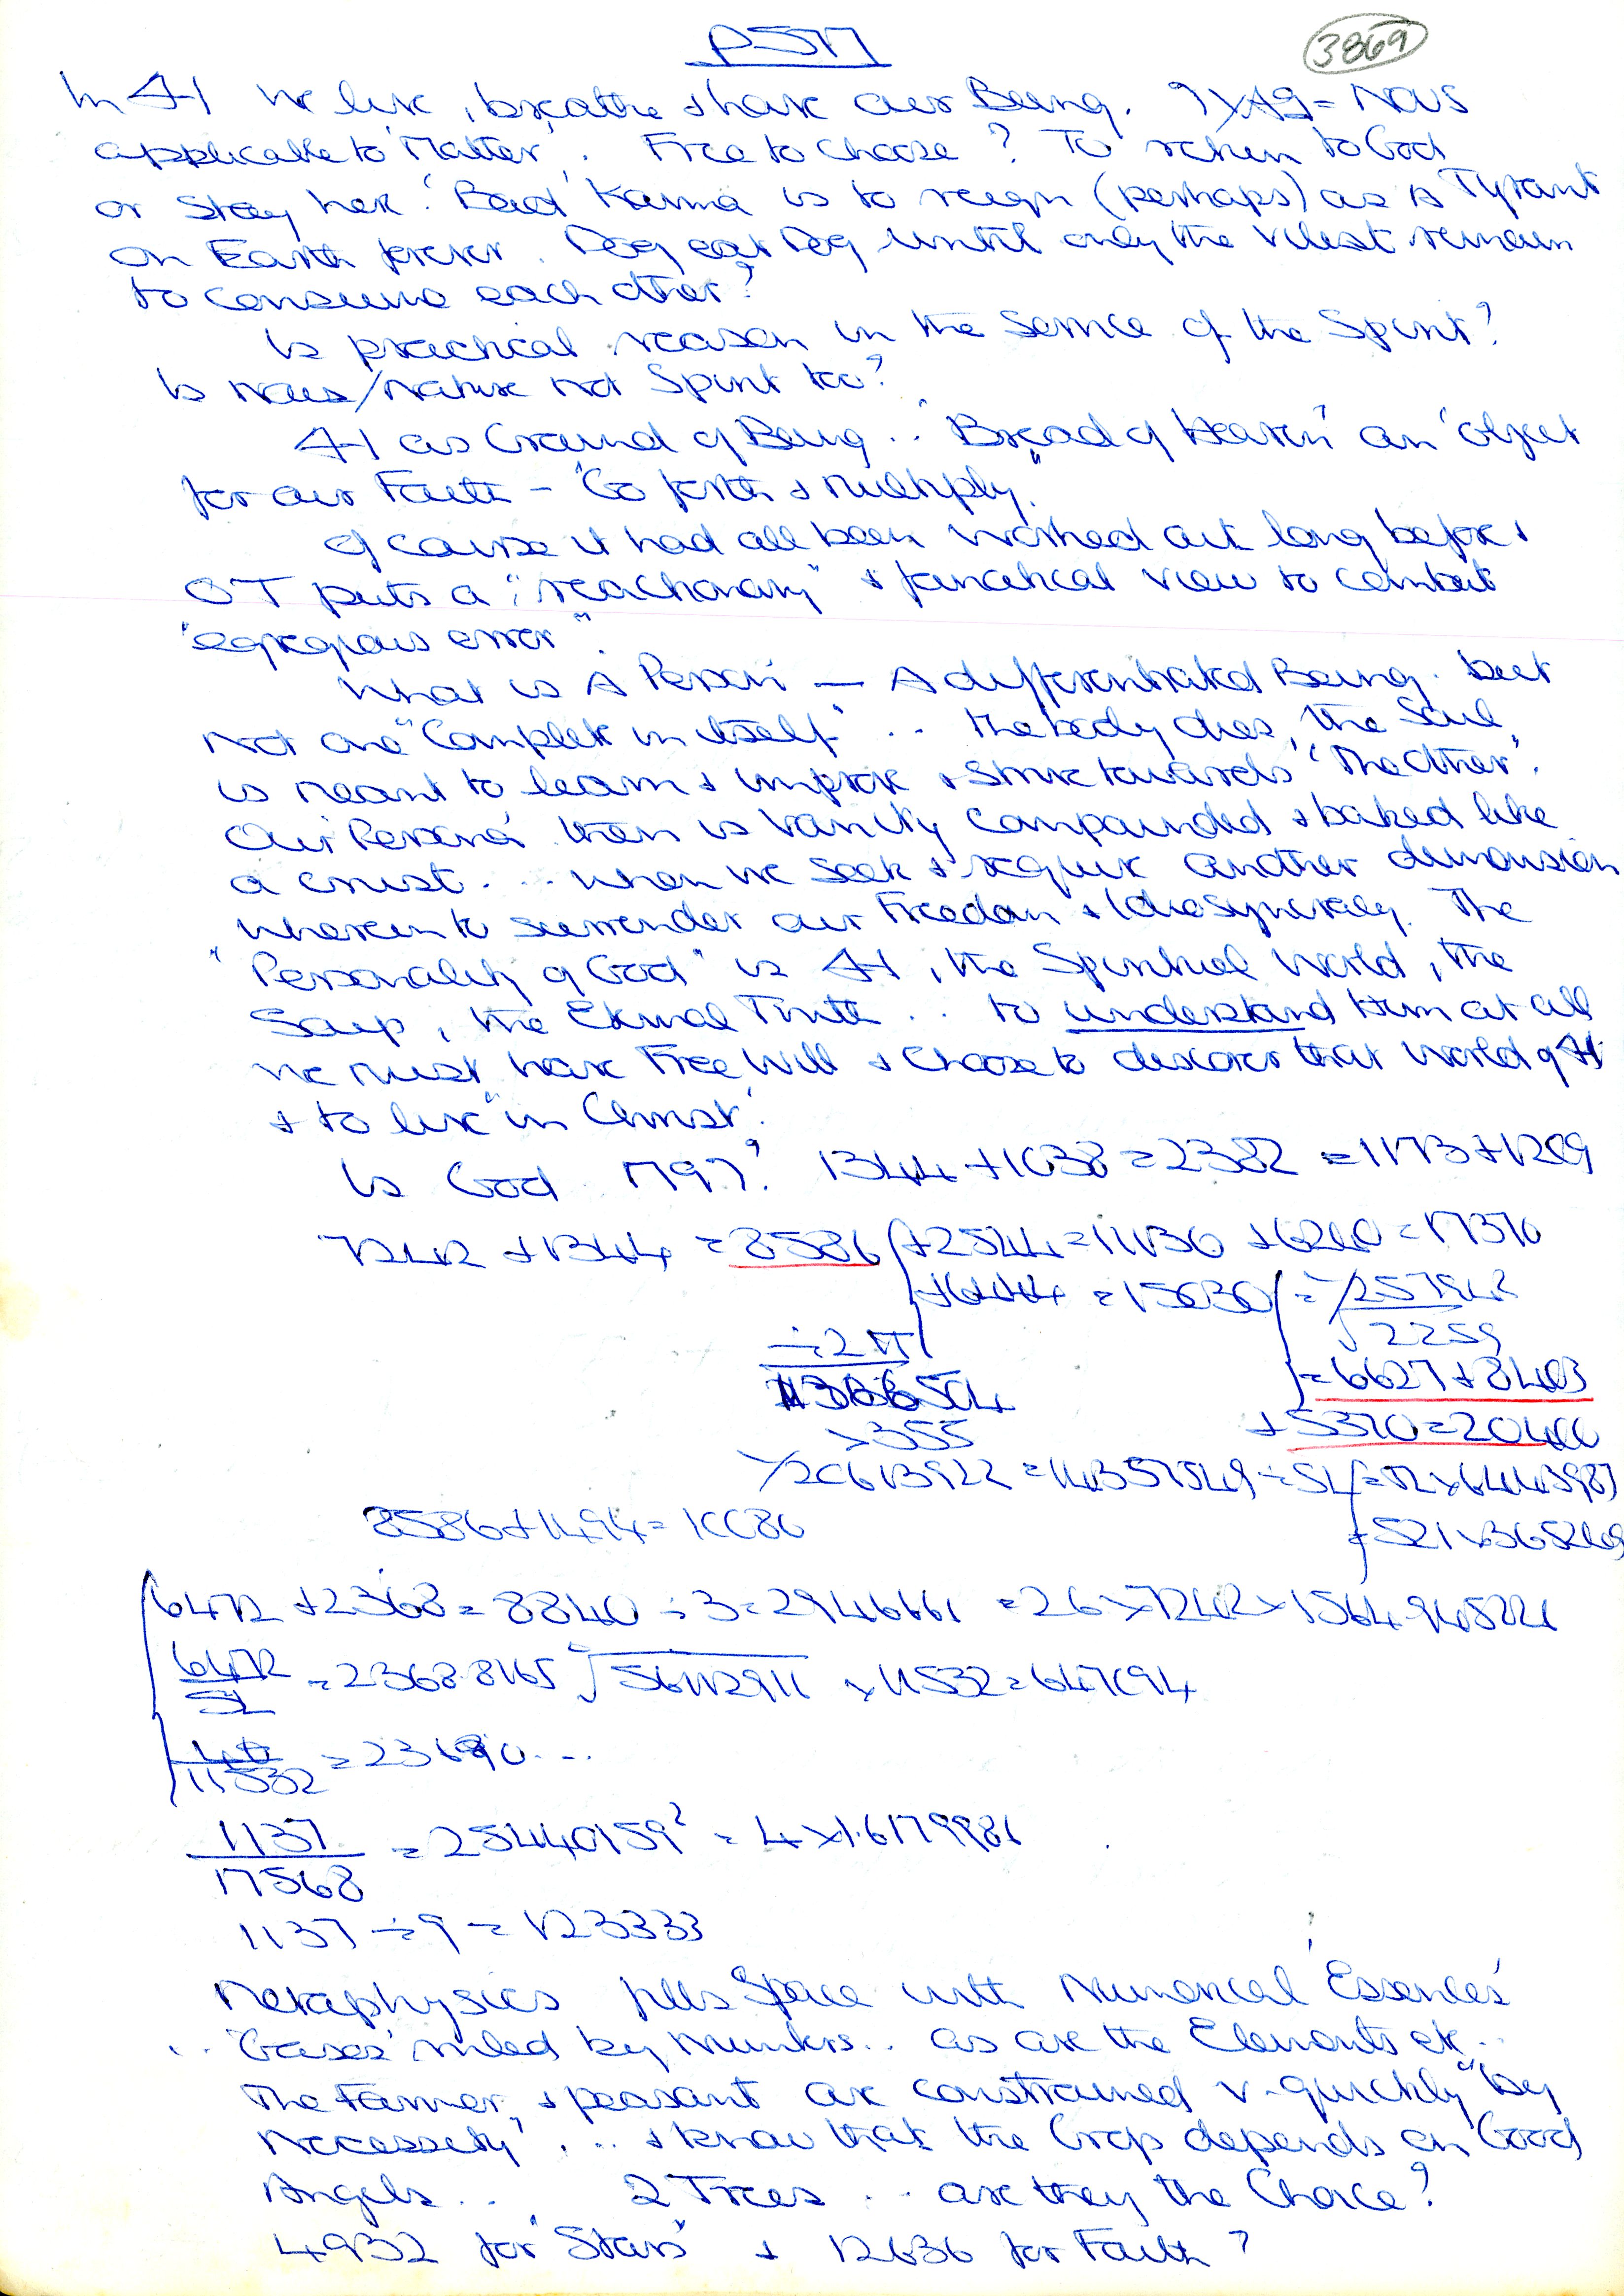 3869
we live, breathe & have our Being.
applicable to 'Matter'. Free to choose? To return to God
or stay here. 'Bad' Karma is to reign (perhaps) as A Tyrant
on Earth forever. Dog eat Dog until only the vilest remain
to consume each other?
Is practical reason in the service of the Spirit?
Is Nous/Nature not Spirit too?
as Ground of Being .. 'Bread of Heaven' an 'object
for our Faith - "Go forth & multiply."
Of course it had all been worked out long before &
OT puts a "reactionary" & fanatical view to combat
"egregious error".
What is A Person — A differentiated Being. but
not one "Complete in itself" .. the body dies, the Soul
is meant to learn & improve & strive towards "The Other".
Our 'Persona' then is Vanity compounded & baked like
a crust ... when we seek & require another dimension
wherein to surrender our Freedom & Idiosyncracy. The
"Personality of God" is , the Spiritual World, the
Soup, the Eternal Truth .. to understand Him at all
we must have Free Will & choose to discover that World of
& to live "in Christ".
Is God 1797? 1344 + 1038 = 2382 = 1173 + 1209
7242 + 1344 = 8586 + 2544 = 11130 + 6240 = 17370
+ 6444 = 15030
÷ 2π
2259
= 6627 + 8403
× 355
+ 5370 = 20400
8586 + 1494 = 10080
6472 + 2368 = 8840 ÷ 3 = 2946666 = 26 × 7242 ×
= 2368.8165 × 11532 = 647094
11532
1137
17568
= 25440159² = 4 × 1.6179986
1137 ÷ 9 =
Metaphysics fills Space with Numerical 'Essences'
.. 'Gases' ruled by Numbers .. as are the Elements etc ..
The Farmer, & peasant are constrained v. quickly "by
Necessity" ... & know that the Crop depends on 'Good
Angels .. 2 Trees .. are they the Choice?
4932 for 'Stars' & 12636 for Faith?